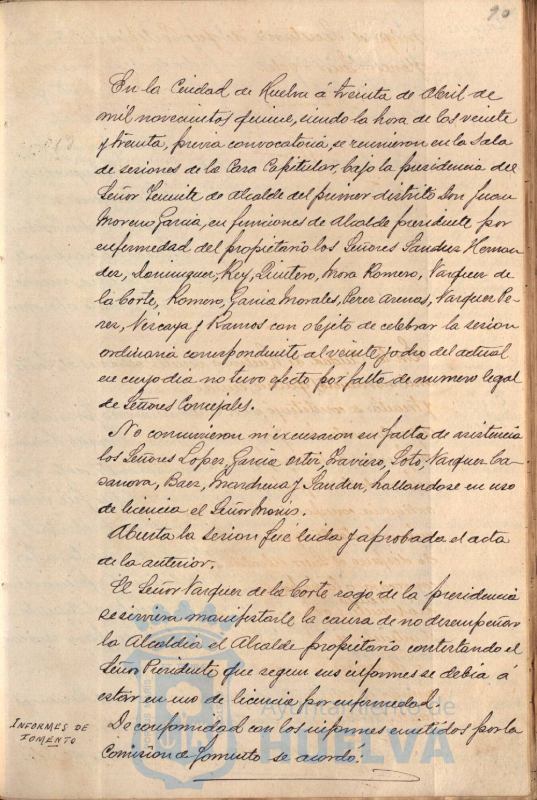 90
En la Ciudad de Huelva á treinta de Abril de
mil novecientos quince, siendo la hora de las veinte
y treinta, previa convocatoria, se reunieron en la Sala
de sesiones de la Casa Capitular, bajo la presidencia del
Señor Teniente de Alcalde del primer distrito Don Juan
Moreno Garcia, en funciones de Alcalde presidente por
enfermedad del propietario los Señores Sanchez Hernan
dez, Dominguez, Rey, Quintero, Mora Romero, Vazquez de
la Corte, Romero, Garcia Morales, Perez Arenas, Vazquez Pe-
rez, Vizcaya y Ramos con objeto de celebrar la sesion
ordinaria correspondiente al veinte y ocho del actual
en cuyo dia no tuvo efecto por falta de numero legal
de Señores Concejales.
No concurrieron ni excusaron su falta de asistencia
los Señores Lopez, Garcia Ortiz, Travieso, Soto, Vazquez Ca-
sanova, Baez, Marchena y Sanchez, hallandose en uso
de licencia el Señor Monis.
Abierta la sesion fué leida y aprobada el acta
de la anterior.
El Señor Vazquez de la Corte rogó de la presidencia
se sirviera manifestarle la causa de no desempeñar
la Alcaldia el Alcalde propietario contestando el
Señor Presidente que segun sus informes se debia á
estar en uso de licencia por enfermedad.
INFORMES DE
FOMENTO
De conformidad con los informes emitidos por la
Comision de Fomento se acordó:
Ayuntamiento de
HUELVA